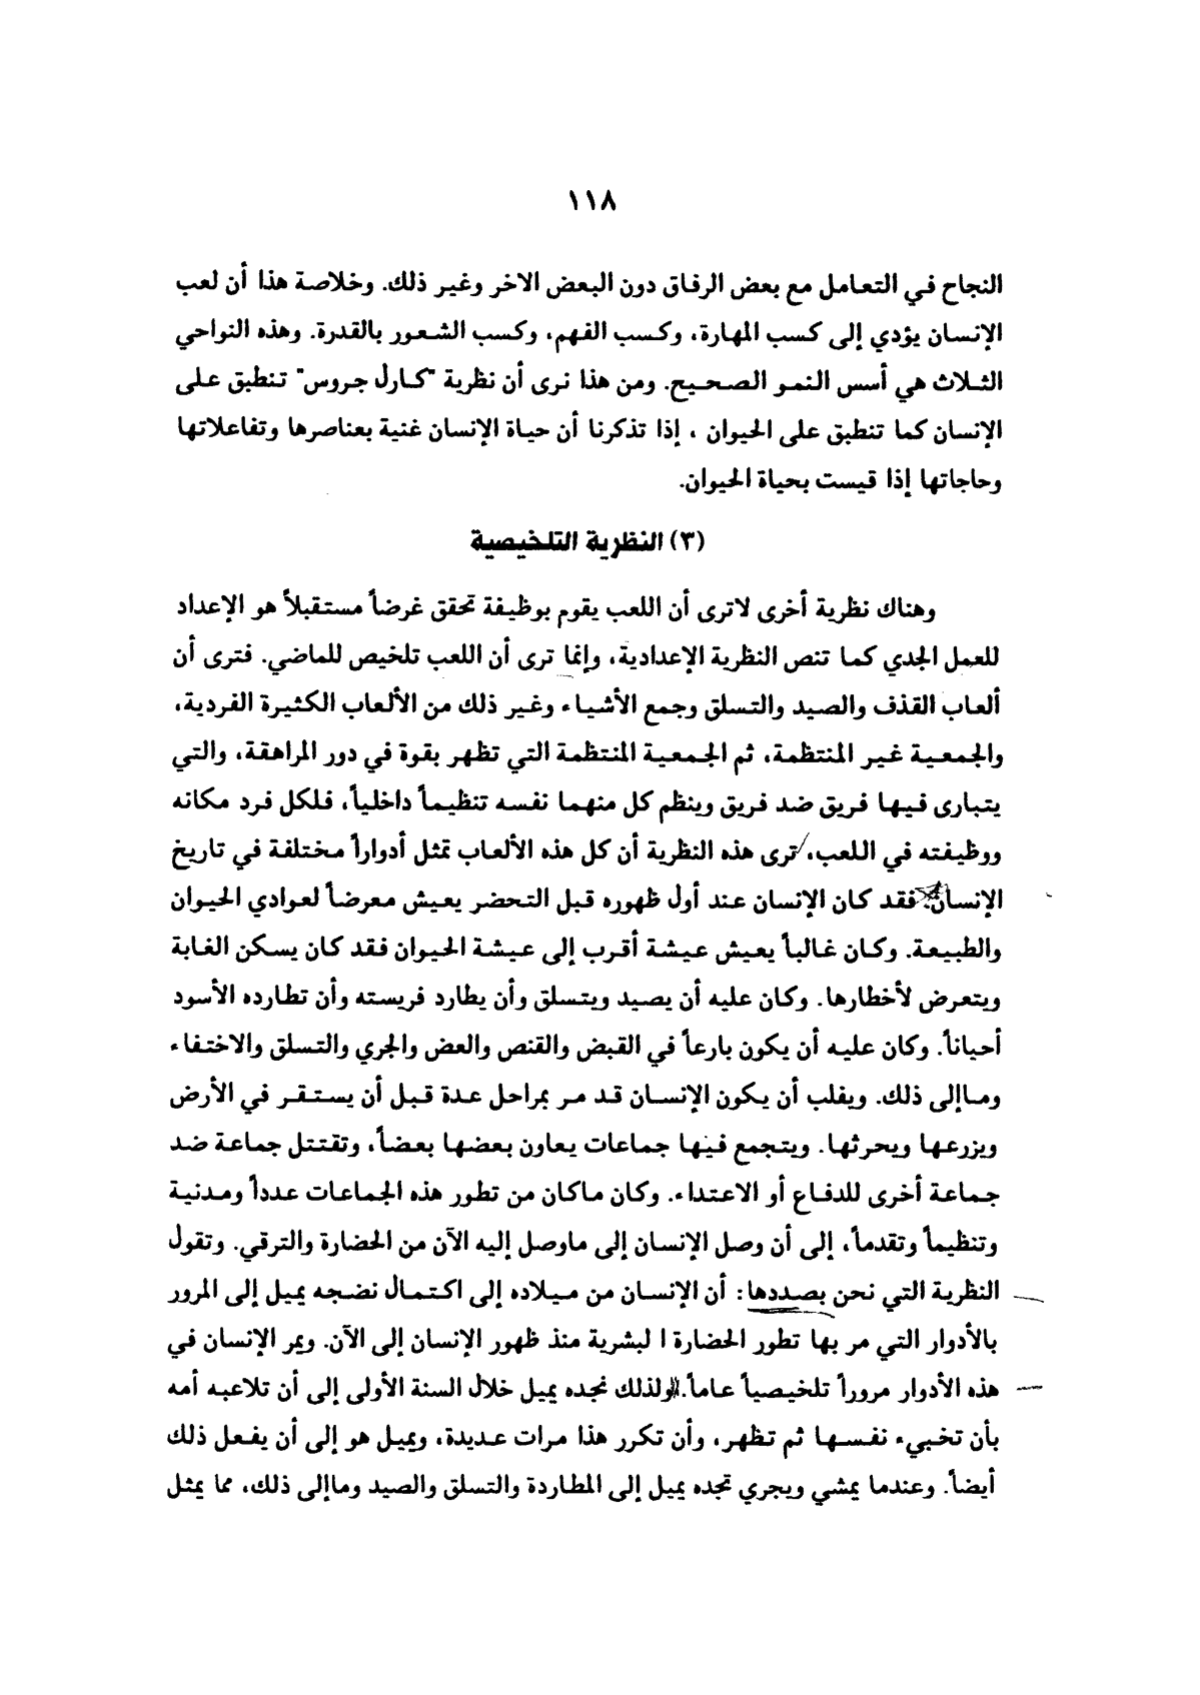 ١١٨
النجاح في التعامل مع بعض الرفاق دون البعض الاخر وغير ذلك. وخلاصة هذا أن لعب
الإنسان يؤدي إلى كسب المهارة، وكسب الفهم، وكسب الشعور بالقدرة. وهذه النواحي
الثلاث هي أسس النمو الصحيح. ومن هذا نرى أن نظرية "كارل جروس" تنطبق على
الإنسان كما تنطبق على الحيوان ، إذا تذكرنا أن حياة الإنسان غنية بعناصرها وتفاعلاتها
وحاجاتها إذا قيست بحياة الحيوان.
(٣) النظرية التلخيصية
وهناك نظرية أخرى لاترى أن اللعب يقوم بوظيفة تحقق غرضاً مستقبلاً هو الإعداد
للعمل الجدي كما تنص النظرية الإعدادية، وإنما ترى أن اللعب تلخيص للماضي. فترى أن
ألعاب القذف والصيد والتسلق وجمع الأشياء وغير ذلك من الألعاب الكثيرة الفردية،
والجمعية غير المنتظمة، ثم الجمعية المنتظمة التي تظهر بقوة في دور المراهقة، والتي
يتبارى فيها فريق ضد فريق وينظم كل منهما نفسه تنظيماً داخلياً، فلكل فرد مكانه
ووظيفته في اللعب، ترى هذه النظرية أن كل هذه الألعاب تمثل أدواراً مختلفة في تاريخ
الإنسان. فقد كان الإنسان عند أول ظهوره قبل التحضر يعيش معرضاً لعوادي الحيوان
والطبيعة. وكان غالباً يعيش عيشة أقرب إلى عيشة الحيوان فقد كان يسكن الغابة
ويتعرض لأخطارها. وكان عليه أن يصيد ويتسلق وأن يطارد فريسته وأن تطارده الأسود
أحياناً. وكان عليه أن يكون بارعاً في القبض والقنص والعض والجري والتسلق والاختفاء
وماإلى ذلك. ويغلب أن يكون الإنسان قد مر بمراحل عدة قبل أن يستقر في الأرض
ويزرعها ويحرثها. ويتجمع فيها جماعات يعاون بعضها بعضاً، وتقتتل جماعة ضد
جماعة أخرى للدفاع أو الاعتداء. وكان ماكان من تطور هذه الجماعات عدداً ومدنية
وتنظيماً وتقدماً، إلى أن وصل الإنسان إلى ماوصل إليه الآن من الحضارة والترقي. وتقول
النظرية التي نحن بصددها: أن الإنسان من ميلاده إلى اكتمال نضجه يميل إلى المرور
بالأدوار التي مر بها تطور الحضارة ا لبشرية منذ ظهور الإنسان إلى الآن. ويمر الإنسان في
هذه الأدوار مروراً تلخيصياً عاماً. ولذلك نجده يميل خلال السنة الأولى إلى أن تلاعبه أمه
بأن تخبيء نفسها ثم تظهر، وأن تكرر هذا مرات عديدة، ويميل هو إلى أن يفعل ذلك
أيضاً. وعندما يمشي ويجري تجده يميل إلى المطاردة والتسلق والصيد وماإلى ذلك، مما يمثل